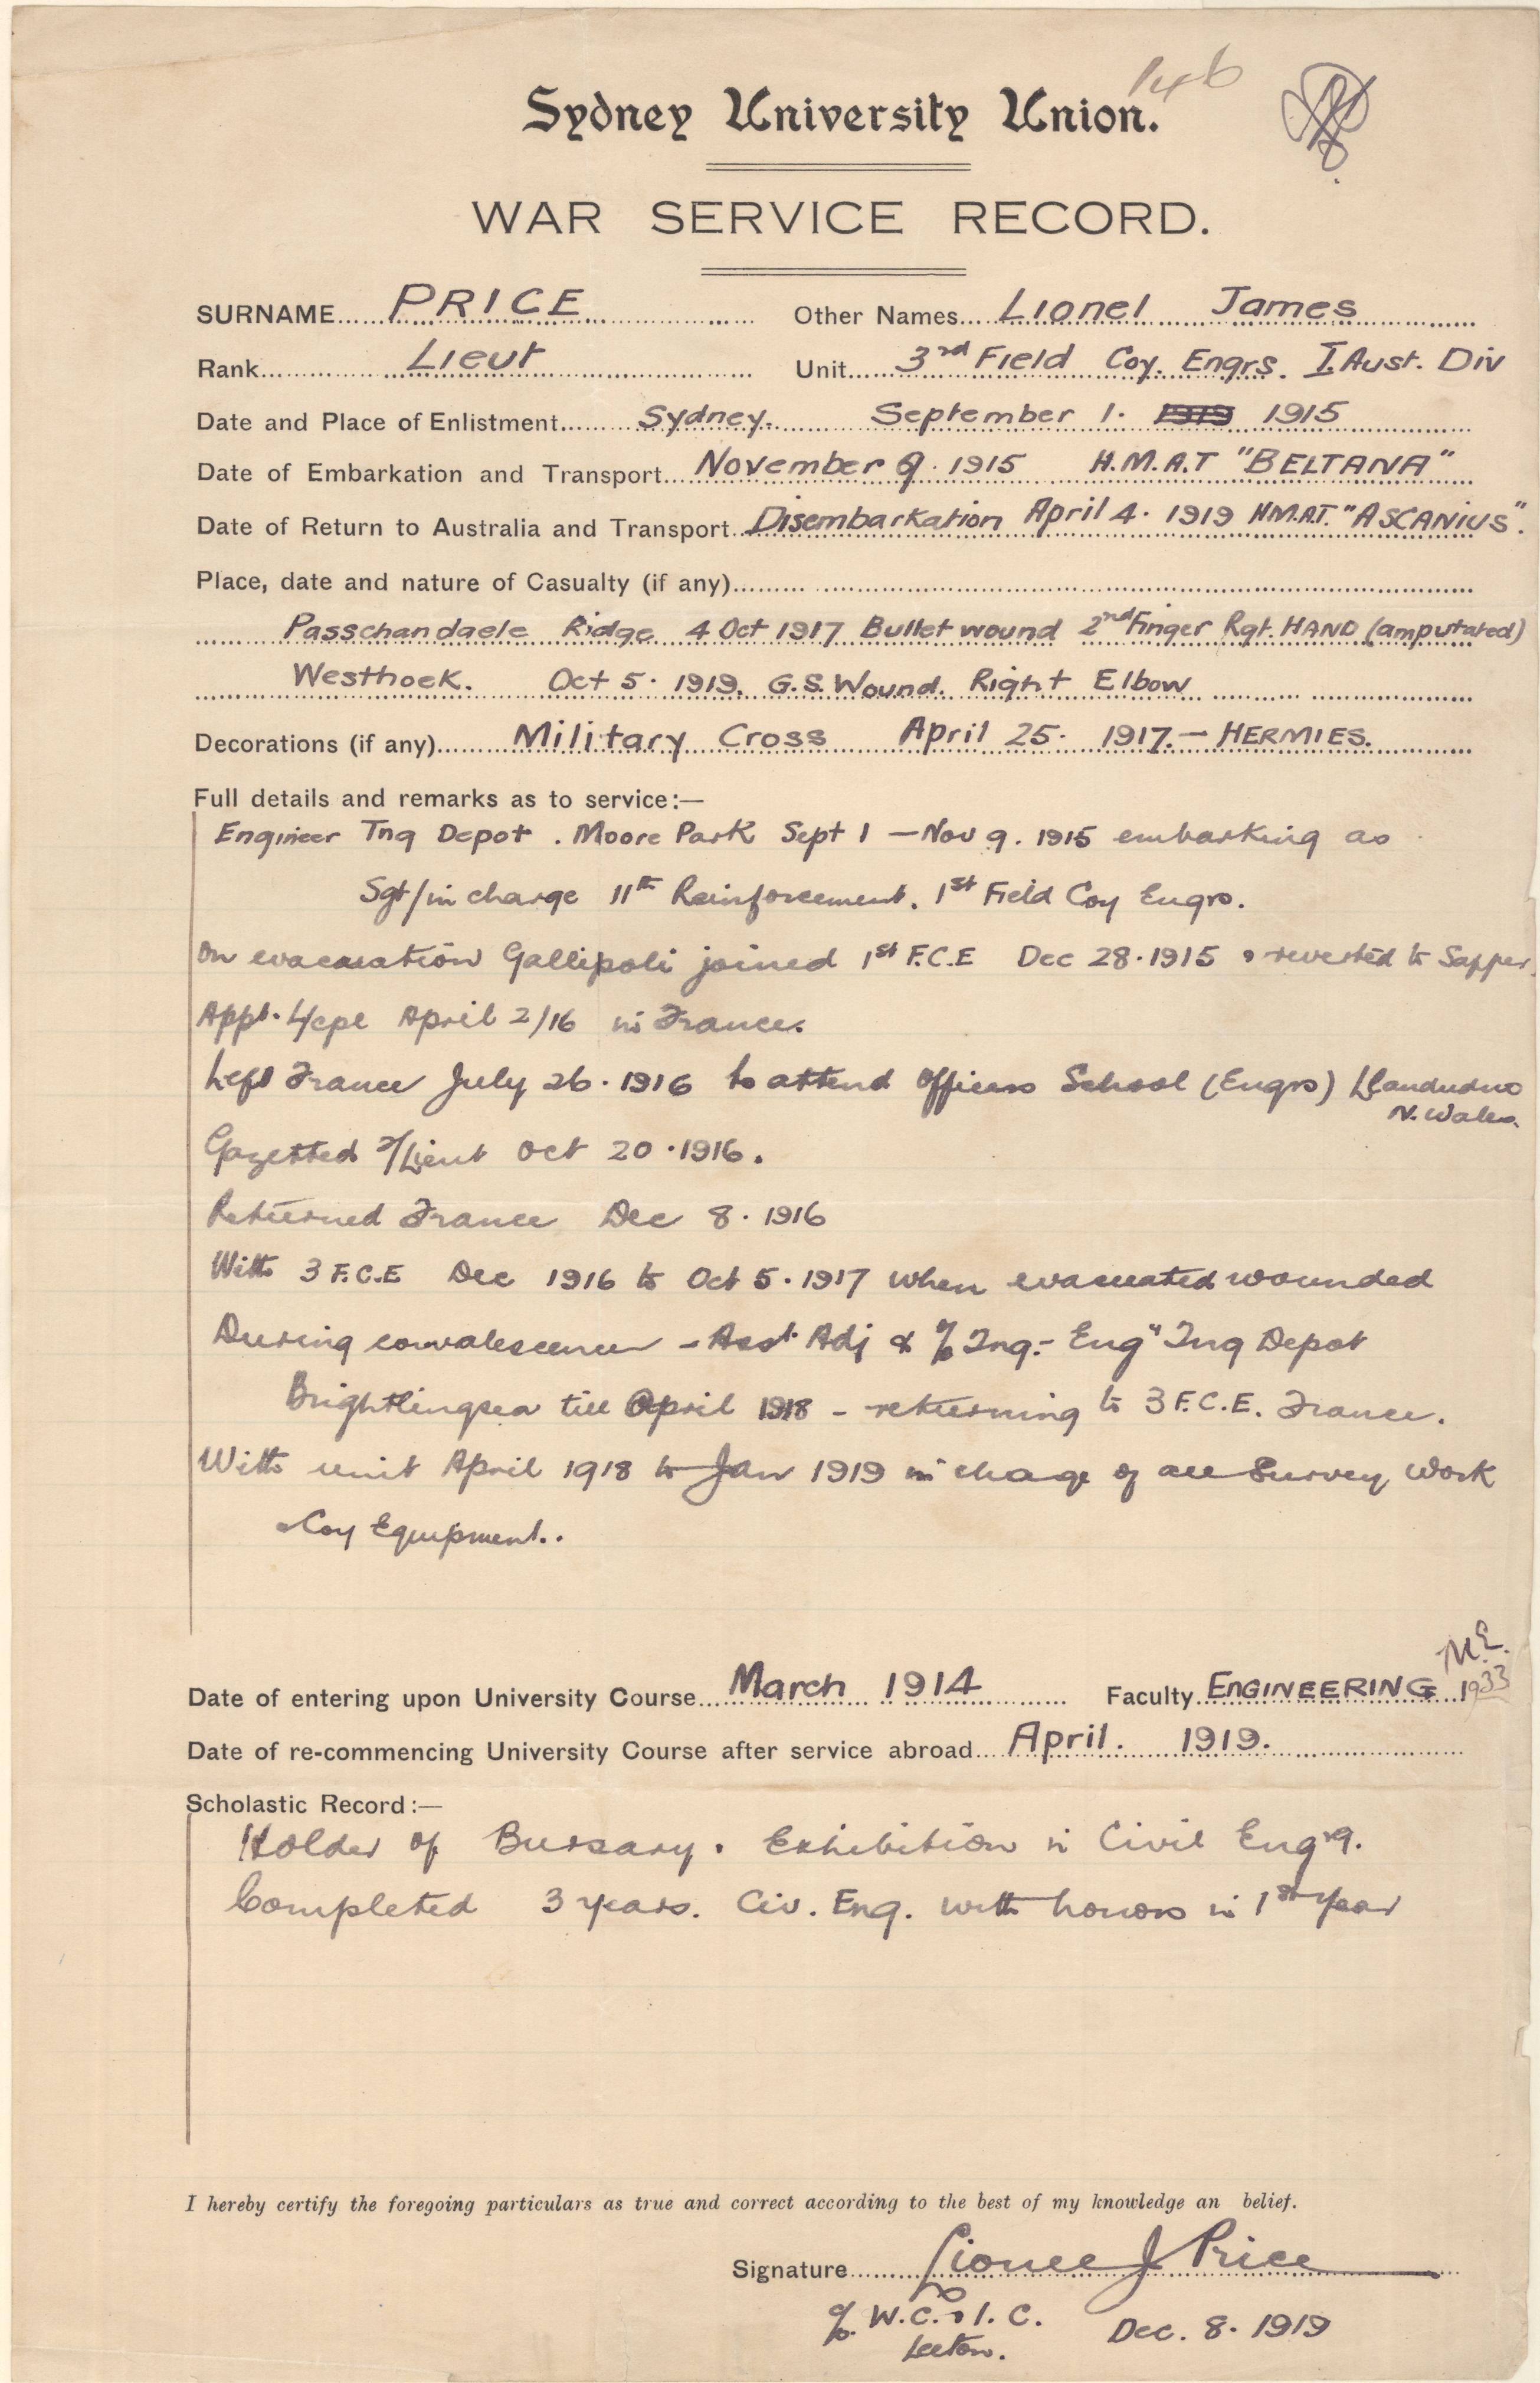 146
Sydney University Union.
WAR SERVICE RECORD.
SURNAME PRICE Other Names Lionel James
Rank Lieut Unit 3rd Field Coy. Engrs. I. Aust. Div
Date and Place of Enlistment Sydney. September 1. 1919 1915
Date of Embarkation and Transport November 9. 1915 H.M.A.T "BELTANA"
Date of Return to Australia and Transport Disembarkation April 4. 1919 H.M.A.T. "ASCANIUS".
Place, date and nature of Casualty (if any)
Passchandaele Ridge 4 Oct 1917 Bullet wound 2nd Finger Rgt. HAND (amputated)
Westhoek. Oct 5. 1919. G.S. Wound. Right Elbow
Decorations (if any) Military Cross April 25. 1917. — HERMIES.
Full details and remarks as to service:—
Engineer Tng Depot. Moore Park Sept 1 — Nov 9. 1915 embarking as
Sgt/in charge 11th Reinforcement. 1st Field Coy Engrs.
On evacuation Gallipoli joined 1st F.C.E Dec 28. 1915 & reverted to Sapper.
Appt. L/cpl April 2/16 in France.
Left France July 26. 1916 to attend Officers School (Engrs) Llandudno
N. Wales.
Gazetted 2/Lieut Oct 20. 1916.
Returned France Dec 8. 1916
With 3 F.C.E Dec 1916 to Oct 5. 1917 when evacuated wounded
During convalescence - Asst. Adj & o/c Tng. - Eng" Tng Depot
Brightlingsea till April 1918 - returning to 3 F.C.E. France.
With unit April 1918 to Jan 1919 in charge of all Survey Work
& Coy Equipment.
M.E.
Date of entering upon University Course March 1914 Faculty ENGINEERING 1933
Date of re-commencing University Course after service abroad April. 1919.
Scholastic Record:—
Holder of Bursary. Exhibition in Civil Engrg.
Completed 3 years. Civ. Eng. with honors in 1st Year
I hereby certify the foregoing particulars as true and correct according to the best of my knowledge an belief.
Signature Lionel J Price
c/o W.C. & I. C. Dec. 8. 1919
Leeton.